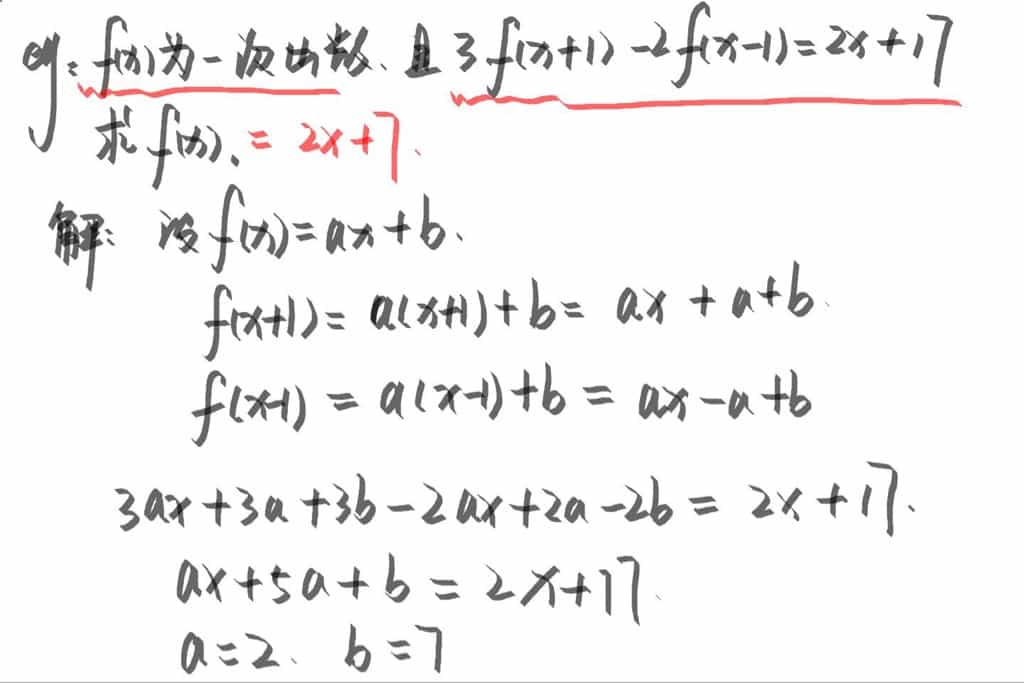 eg: f(x)为一次函数.且3f(x+1)-2f(x-1)=2x+17
求f(x). = 2x+7.
解: 设f(x)=ax+b.
f(x+1)= a(x+1)+b= ax+a+b.
f(x-1) = a(x-1)+b = ax-a+b
3ax+3a+3b-2ax+2a-2b = 2x+17.
ax+5a+b = 2x+17.
a=2. b=7